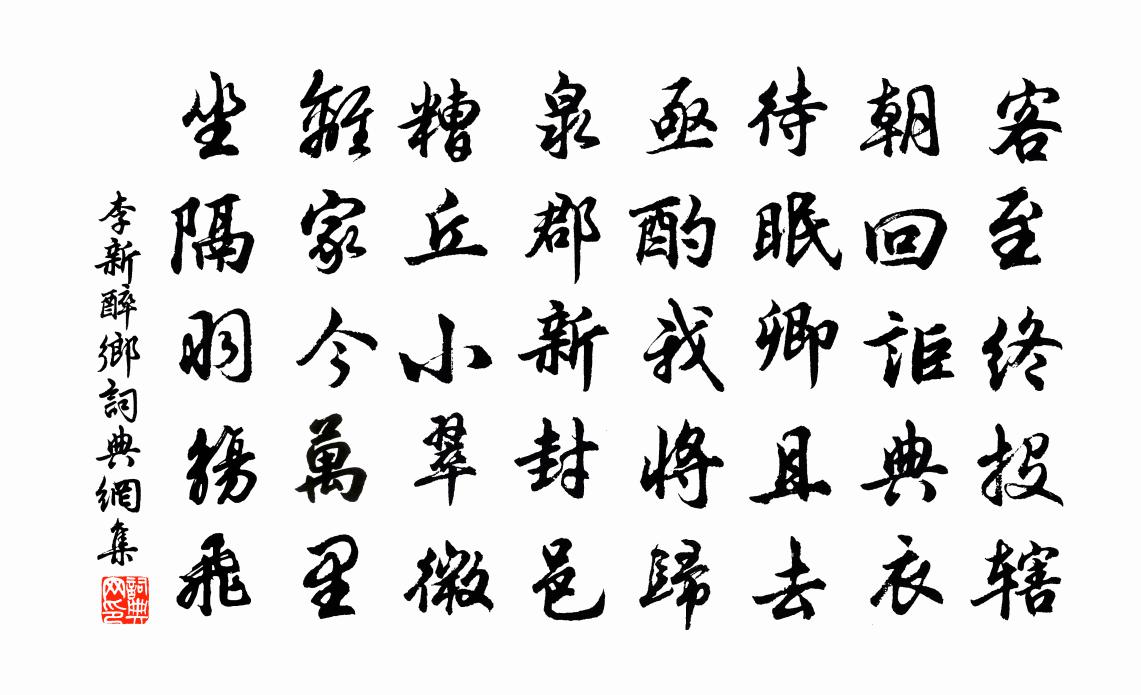 客至終投辖
朝回詎典衣
待眠卿且去
亟酌我將歸
泉郡新封邑
糟丘小翠微
離家今萬里
坐隔羽觴飛
李新醉鄉詞典網集
詞典
网印